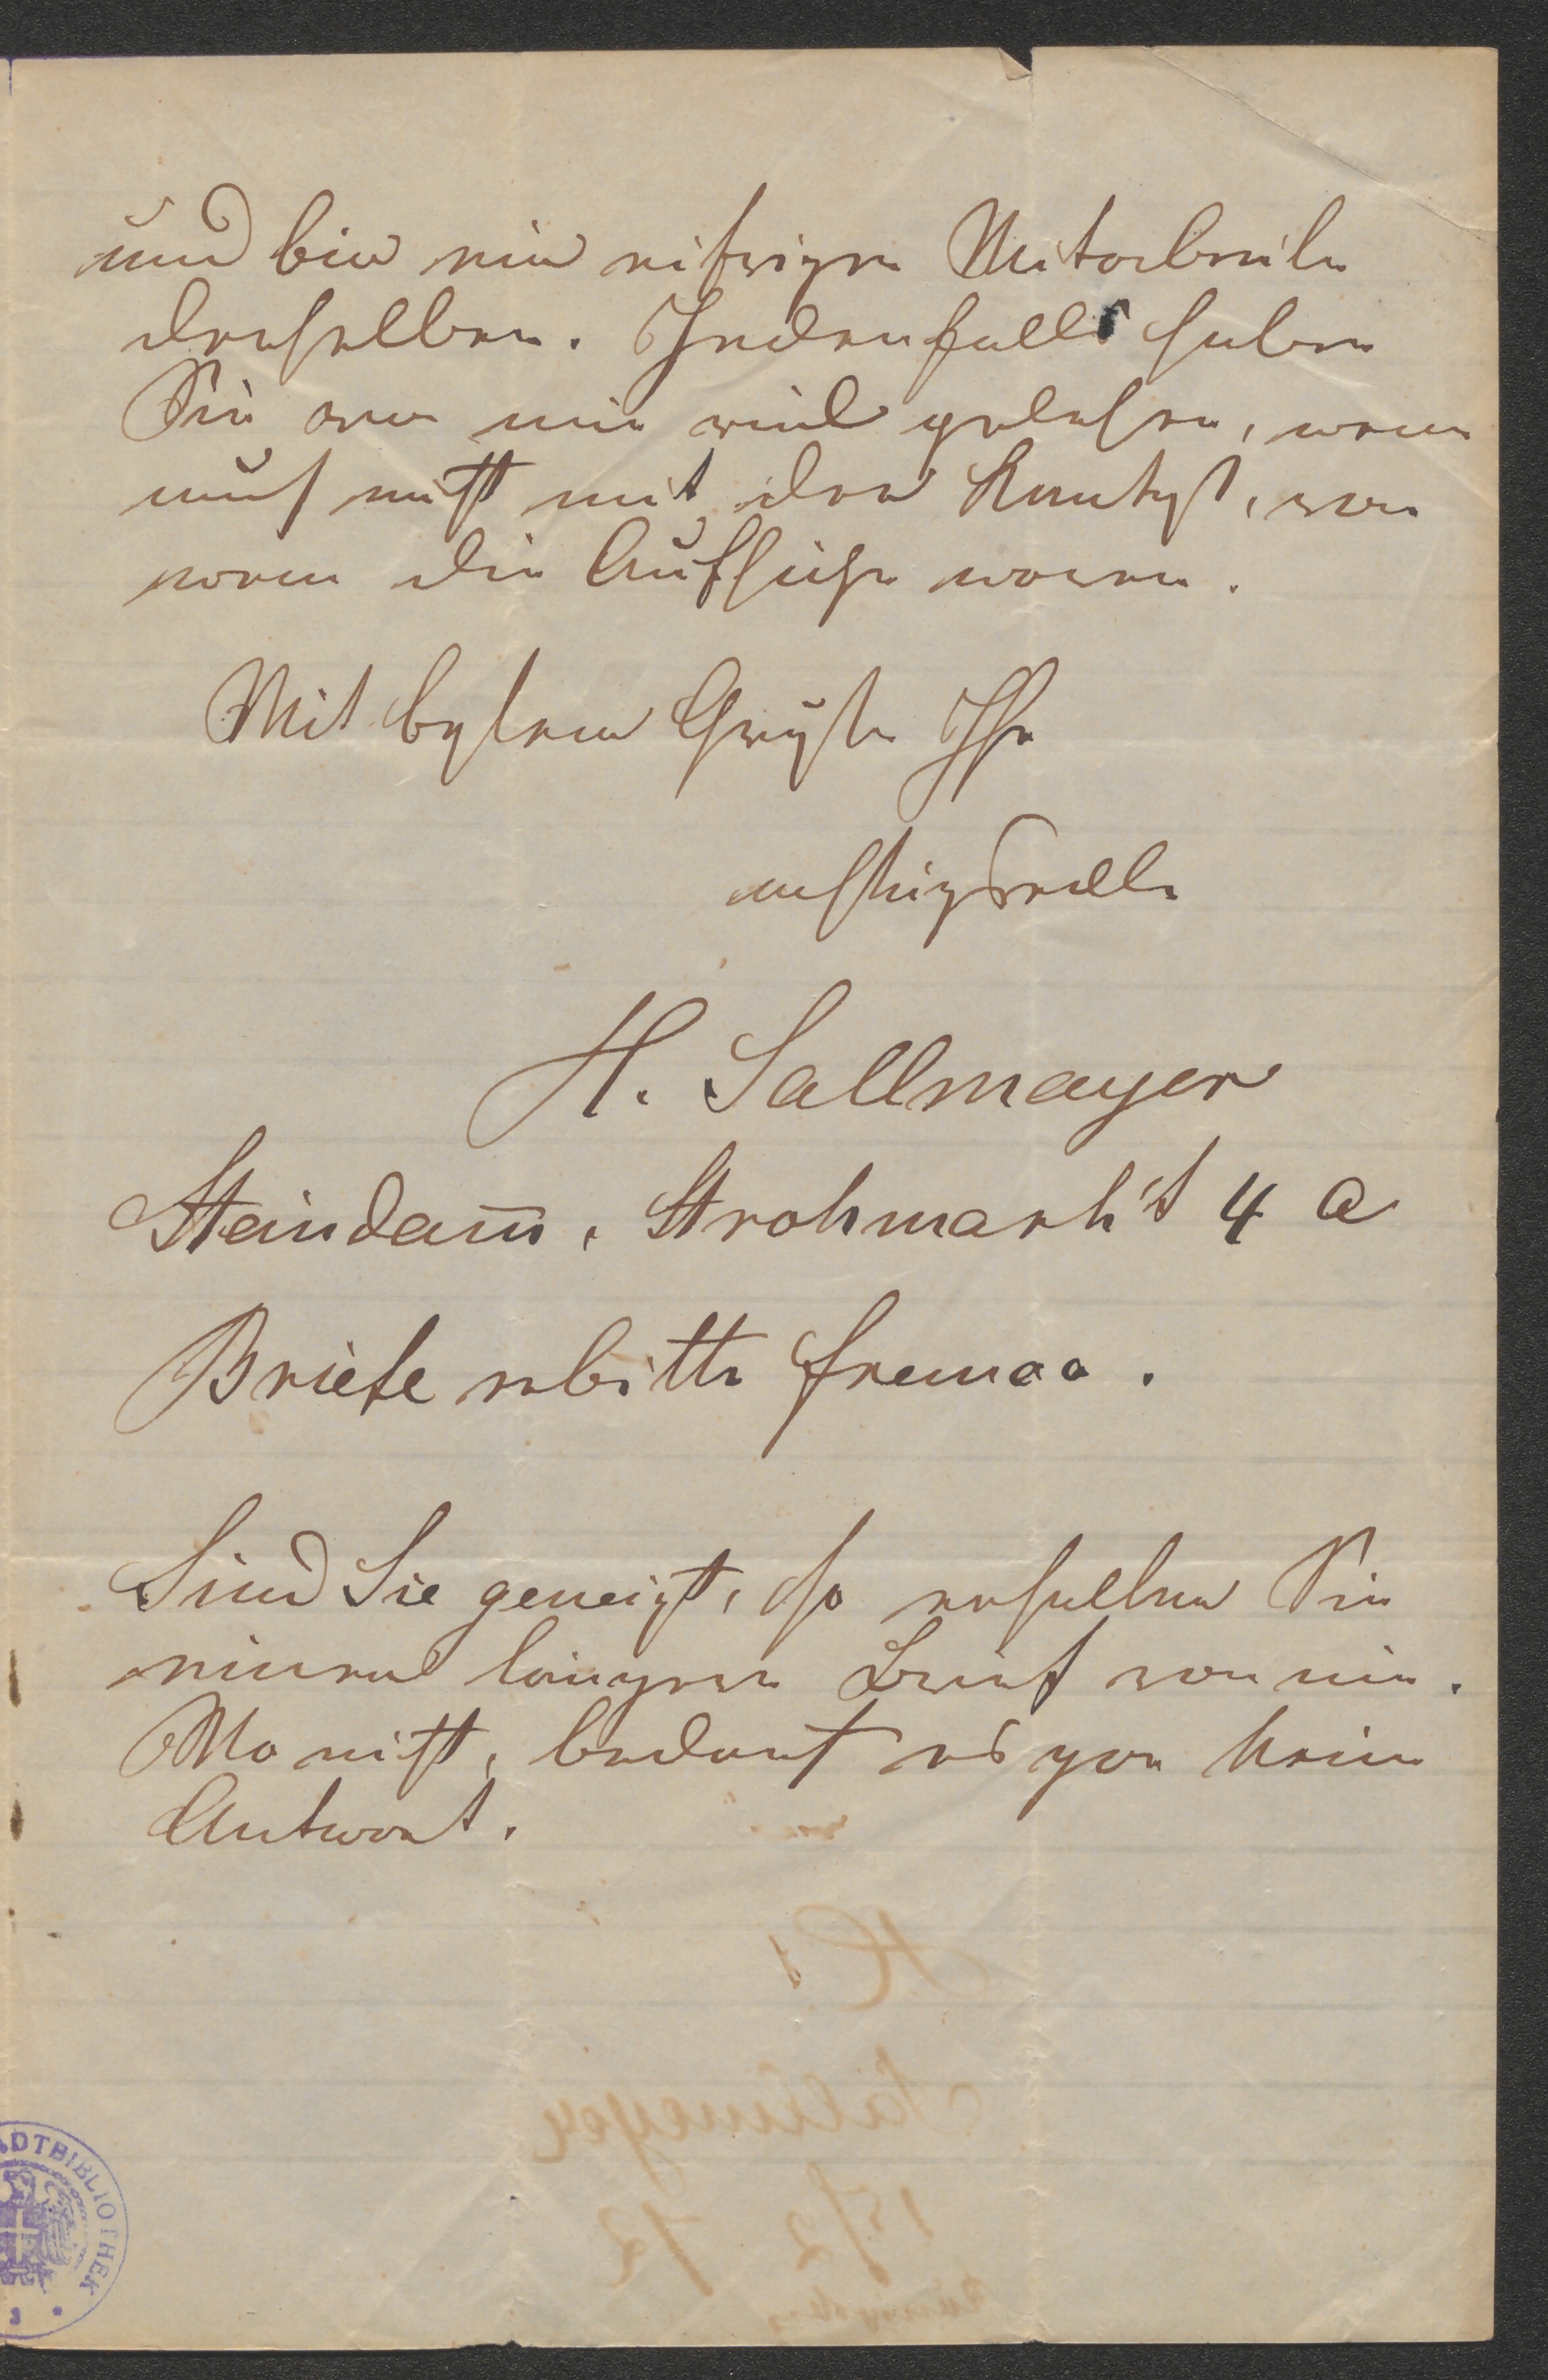 und bin ein eifriger Mitarbeiter
derselben. Jedenfalls haben
Sie von mir viel gelesen, wenn
auch nicht mit der Kenntniß, von
wem die Aufsätze waren.
Mit bestem Gruße Ihr
H. Sallmayer
Steindam̅, Strohmark't 4 a
Briefe erbitte franco.
Sind Sie geneigt, so erhalten Sie
einen längeren Brief von mir.
Wo nicht, bedarf es gar keiner
Antwort.
ADTBIBLIOTHEK